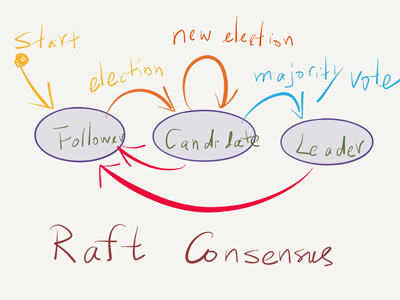 Start
election
new election
majority vote
Follower
Candidate
Leader
Raft Consensus